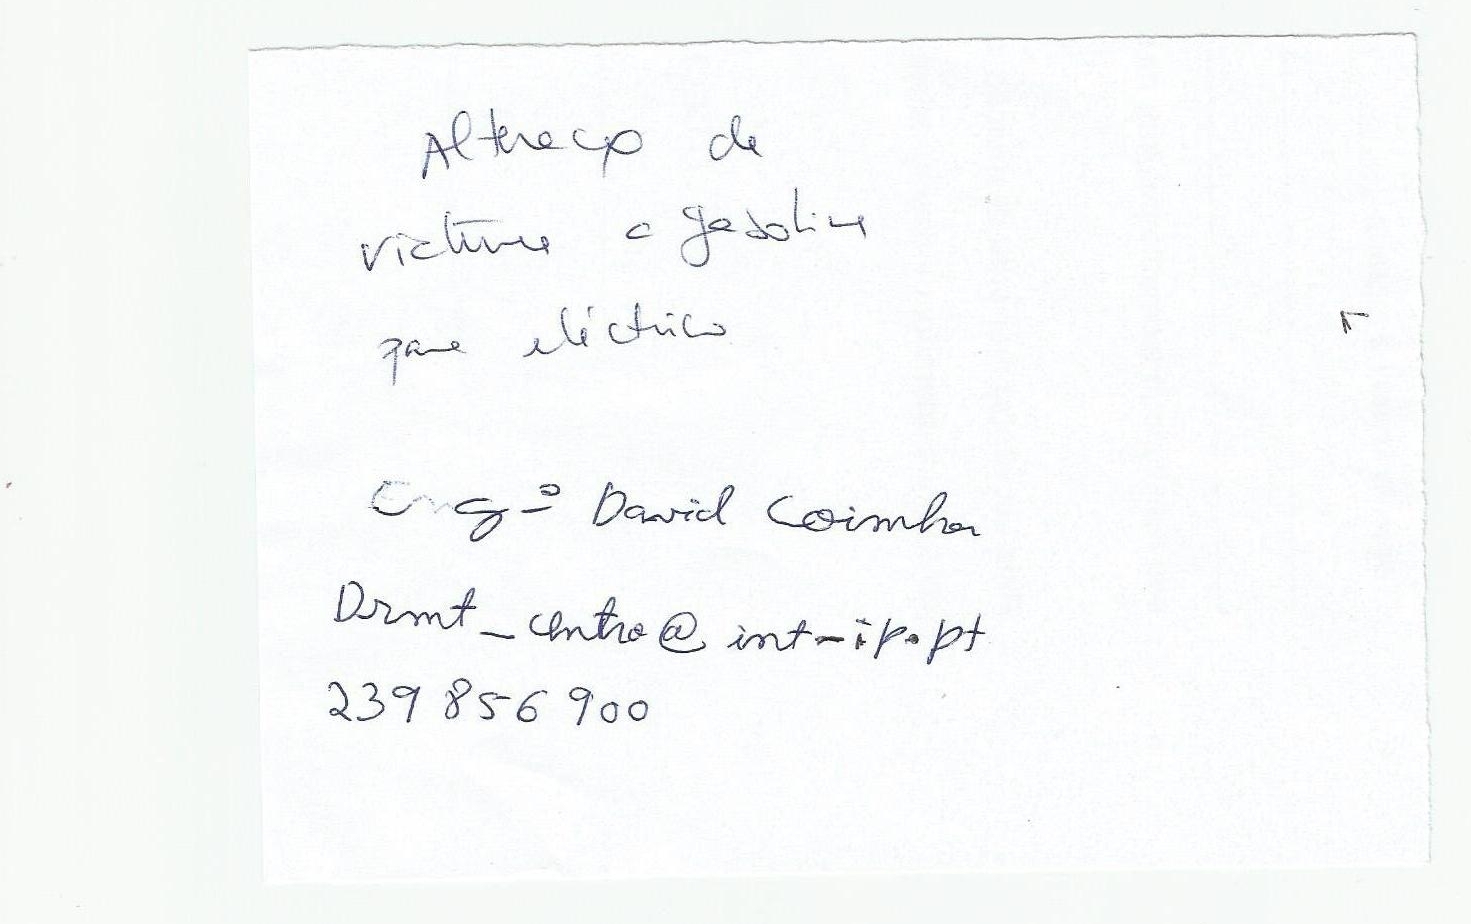 Alteração de
viatura a gasolina
para eléctrico
Eng.º David Coimbra
Drmt_centro@imt-ip.pt
239 856 900